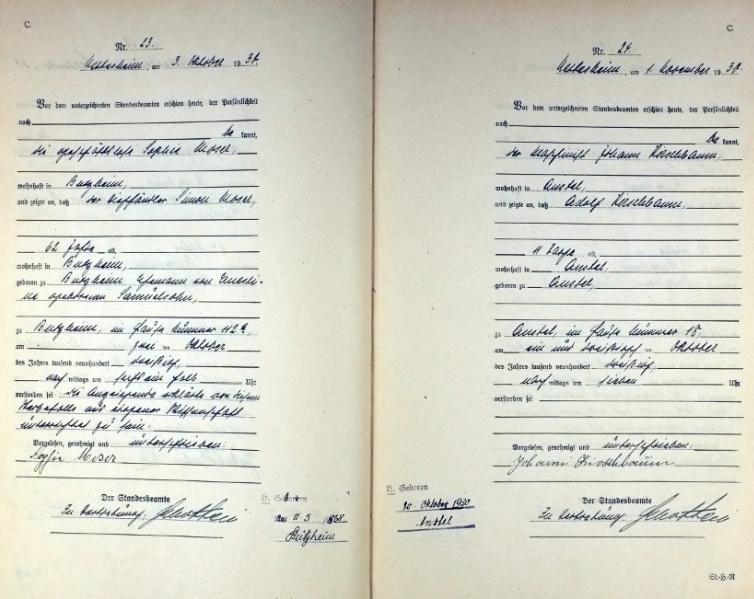 C.
Nr. 23.
Nettesheim, am 3. Oktober 1930.
Vor dem unterzeichneten Standesbeamten erschien heute, der Persönlichkeit
nach
be kannt,
die geschäftslose Sophie Moser,
wohnhaft in Butzheim,
und zeigte an, daß der Viehhändler Simon Moser,
62 Jahre alt,
wohnhaft in Butzheim,
geboren zu Butzheim, Ehemann von Ernesti-
ne geborenen Samuelsohn,
zu Butzheim, im Hause Nummer 112a,
am zwei ten Oktober
des Jahres tausend neunhundert dreißig,
nach mittags um fünf ein halb Uhr
verstorben sei. Die Anzeigende erklärte von diesem
Sterbefalle aus eigener Wissenschaft
unterrichtet zu sein.
Vorgelesen, genehmigt und unterschrieben:
Sophie Moser
Der Standesbeamte
In Vertretung:
H. Geboren
am 11.5 1868
Butzheim
C.
Nr. 24.
Nettesheim, am 1. November 1930.
Vor dem unterzeichneten Standesbeamten erschien heute, der Persönlichkeit
nach
be kannt,
der Maschinist Johann Kirschbaum,
wohnhaft in Anstel,
und zeigte an, daß Adolf Kirschbaum,
11 Tage alt,
wohnhaft in Anstel,
geboren zu Anstel,
zu Anstel, im Hause Nummer 18,
am ein und dreißigsten Oktober
des Jahres tausend neunhundert dreißig,
nach mittags um sieben Uhr
verstorben sei
Vorgelesen, genehmigt und unterschrieben:
Johann Kirschbaum
Der Standesbeamte
In Vertretung:
H. Geboren
20. Oktober 1930
Anstel
St.-H.-R